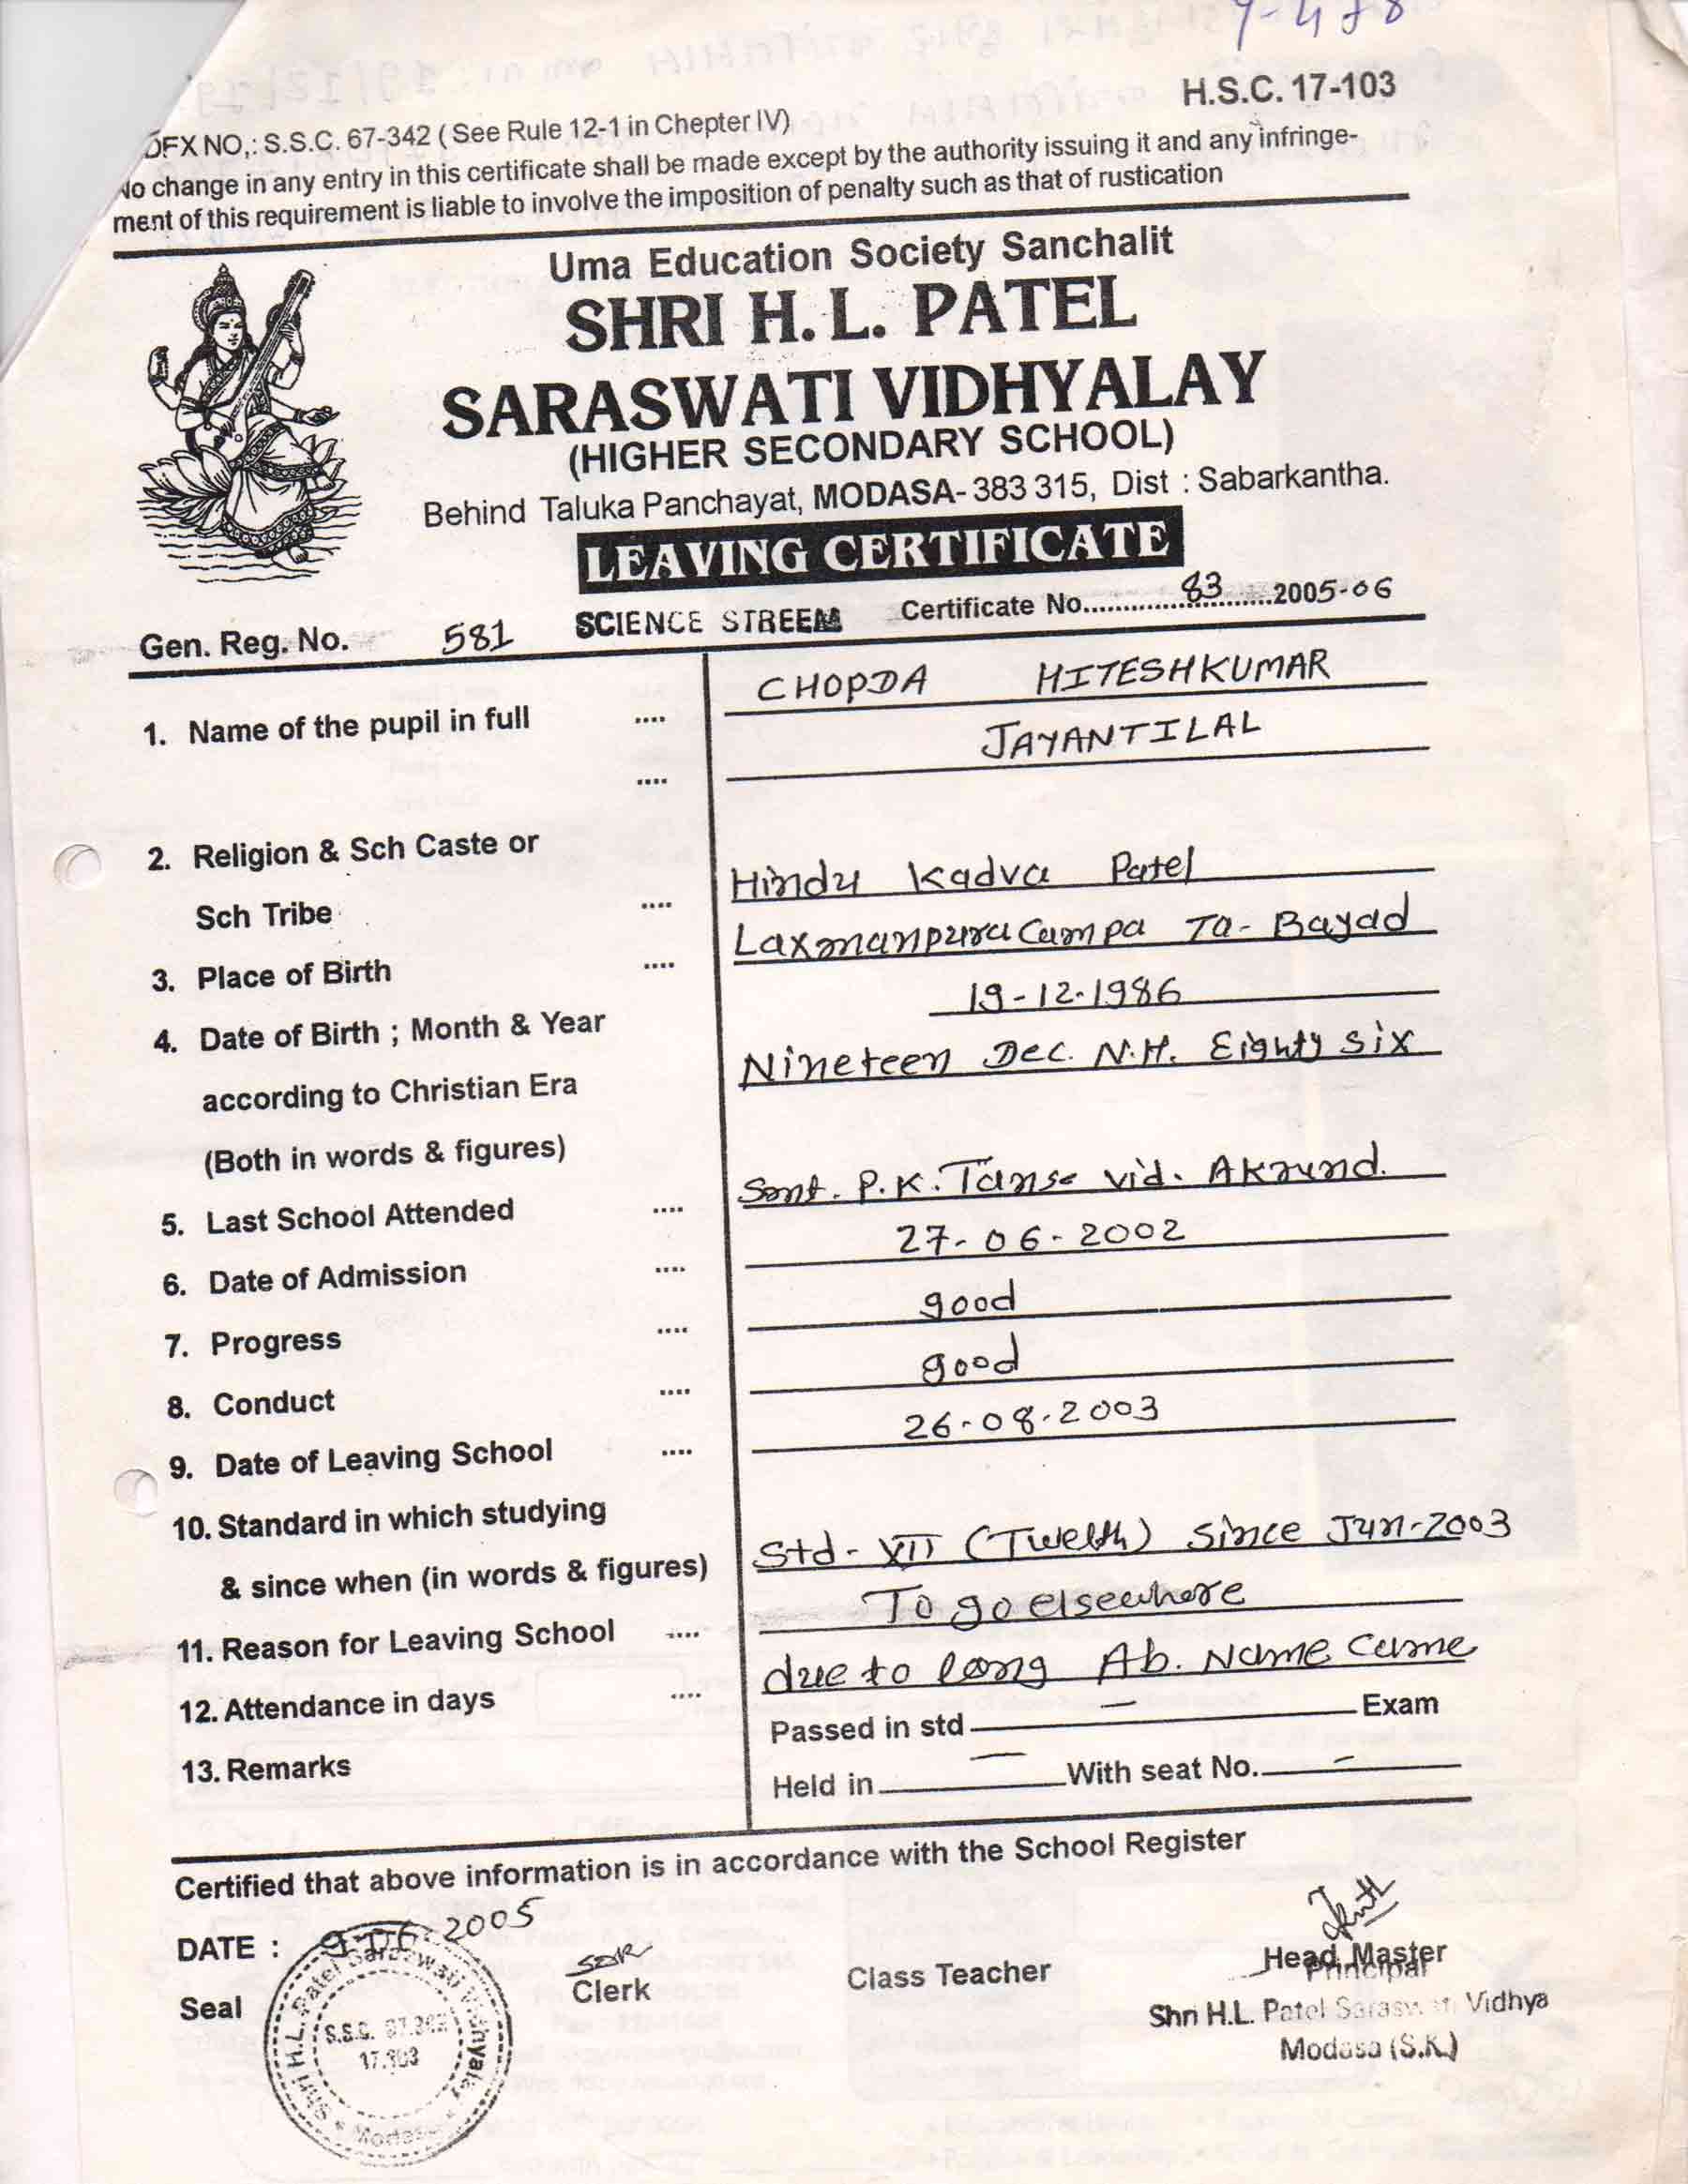 H.S.C. 17-103
NO,: S.S.C. 67-342 ( See Rule 12-1 in Chepter IV)
No change in any entry in this certificate shall be made except by the authority issuing it and any infringe-
ment of this requirement is liable to involve the imposition of penalty such as that of rustication
Uma Education Society Sanchalit
SHRI H. L. PATEL
SARASWATI VIDHYALAY
(HIGHER SECONDARY SCHOOL)
Behind Taluka Panchayat, MODASA- 383 315, Dist : Sabarkantha.
LEAVING CERTIFICATE
SCIENCE STREEM Certificate No. 83 2005-06
Gen. Reg. No. 581
1. Name of the pupil in full .... CHOPDA HITESHKUMAR
.... JAYANTILAL
2. Religion & Sch Caste or
Sch Tribe .... Hindu Kadva Patel
3. Place of Birth .... Laxmanpura Campa Ta- Bayad
4. Date of Birth ; Month & Year 19-12-1986
according to Christian Era Nineteen Dec. N.H. Eighty Six
(Both in words & figures)
5. Last School Attended .... Smt. P.K. Vid. Akrund.
6. Date of Admission .... 27-06-2002
7. Progress .... good
8. Conduct .... good
9. Date of Leaving School .... 26-08-2003
10. Standard in which studying
& since when (in words & figures) Std- XII (Twelth) Since Jun-2003
11. Reason for Leaving School .... To go elsewhere
12. Attendance in days .... due to long Ab. Name Came
13. Remarks Passed in std — Exam
Held in — With seat No. -
Certified that above information is in accordance with the School Register
DATE : 9-06-2005
Seal
Clerk
Class Teacher
Head Master
Principal
Shri H.L. Patel Saraswati Vidhya
Modasa (S.K.)
Shri H.L. Patel Saraswati Vidhyalay
S.S.C.
17.103
Modasa